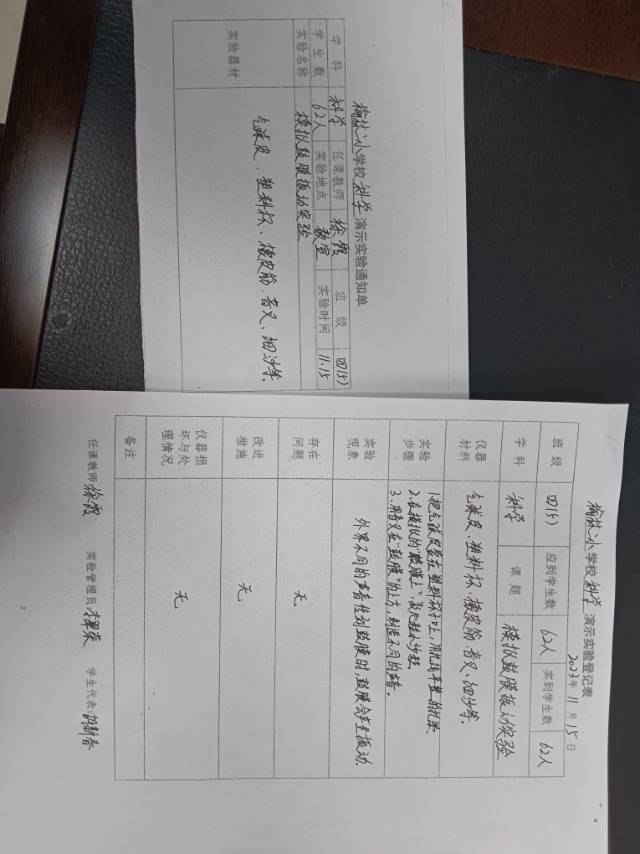 榆林二小学校科学演示实验通知单
学科 科学 任课教师 徐霞 班级 四(5)
学生数 62人 实验地点 教室 实验时间 11.15
实验名称 模拟鼓膜振动实验
实验器材 气球皮、塑料杯、橡皮筋、音叉、细沙等。
榆林二小学校科学演示实验登记表
2023年11月15日
班级 四(5) 应到学生数 62人 实到学生数 62人
学科 科学 课题 模拟鼓膜振动实验
仪器材料 气球皮、塑料杯、橡皮筋、音叉、细沙等。
实验步骤 1.把气球皮蒙在塑料杯子上,用
2.在模拟的"鼓膜上"放几粒小沙粒。
3.用音叉在"鼓膜"的上方,制造不同的声音。
实验现象 外界不同的声音传到鼓膜时,鼓膜会产生振动。
存在问题 无
改进措施 无
仪器损坏与处理情况 无
备注
任课教师:徐霞 实验管理员: 学生代表:
2